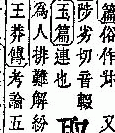 篇俗作 又
陟劣切音輟
玉篇連也
為人排難解紛
王莽傳考論五